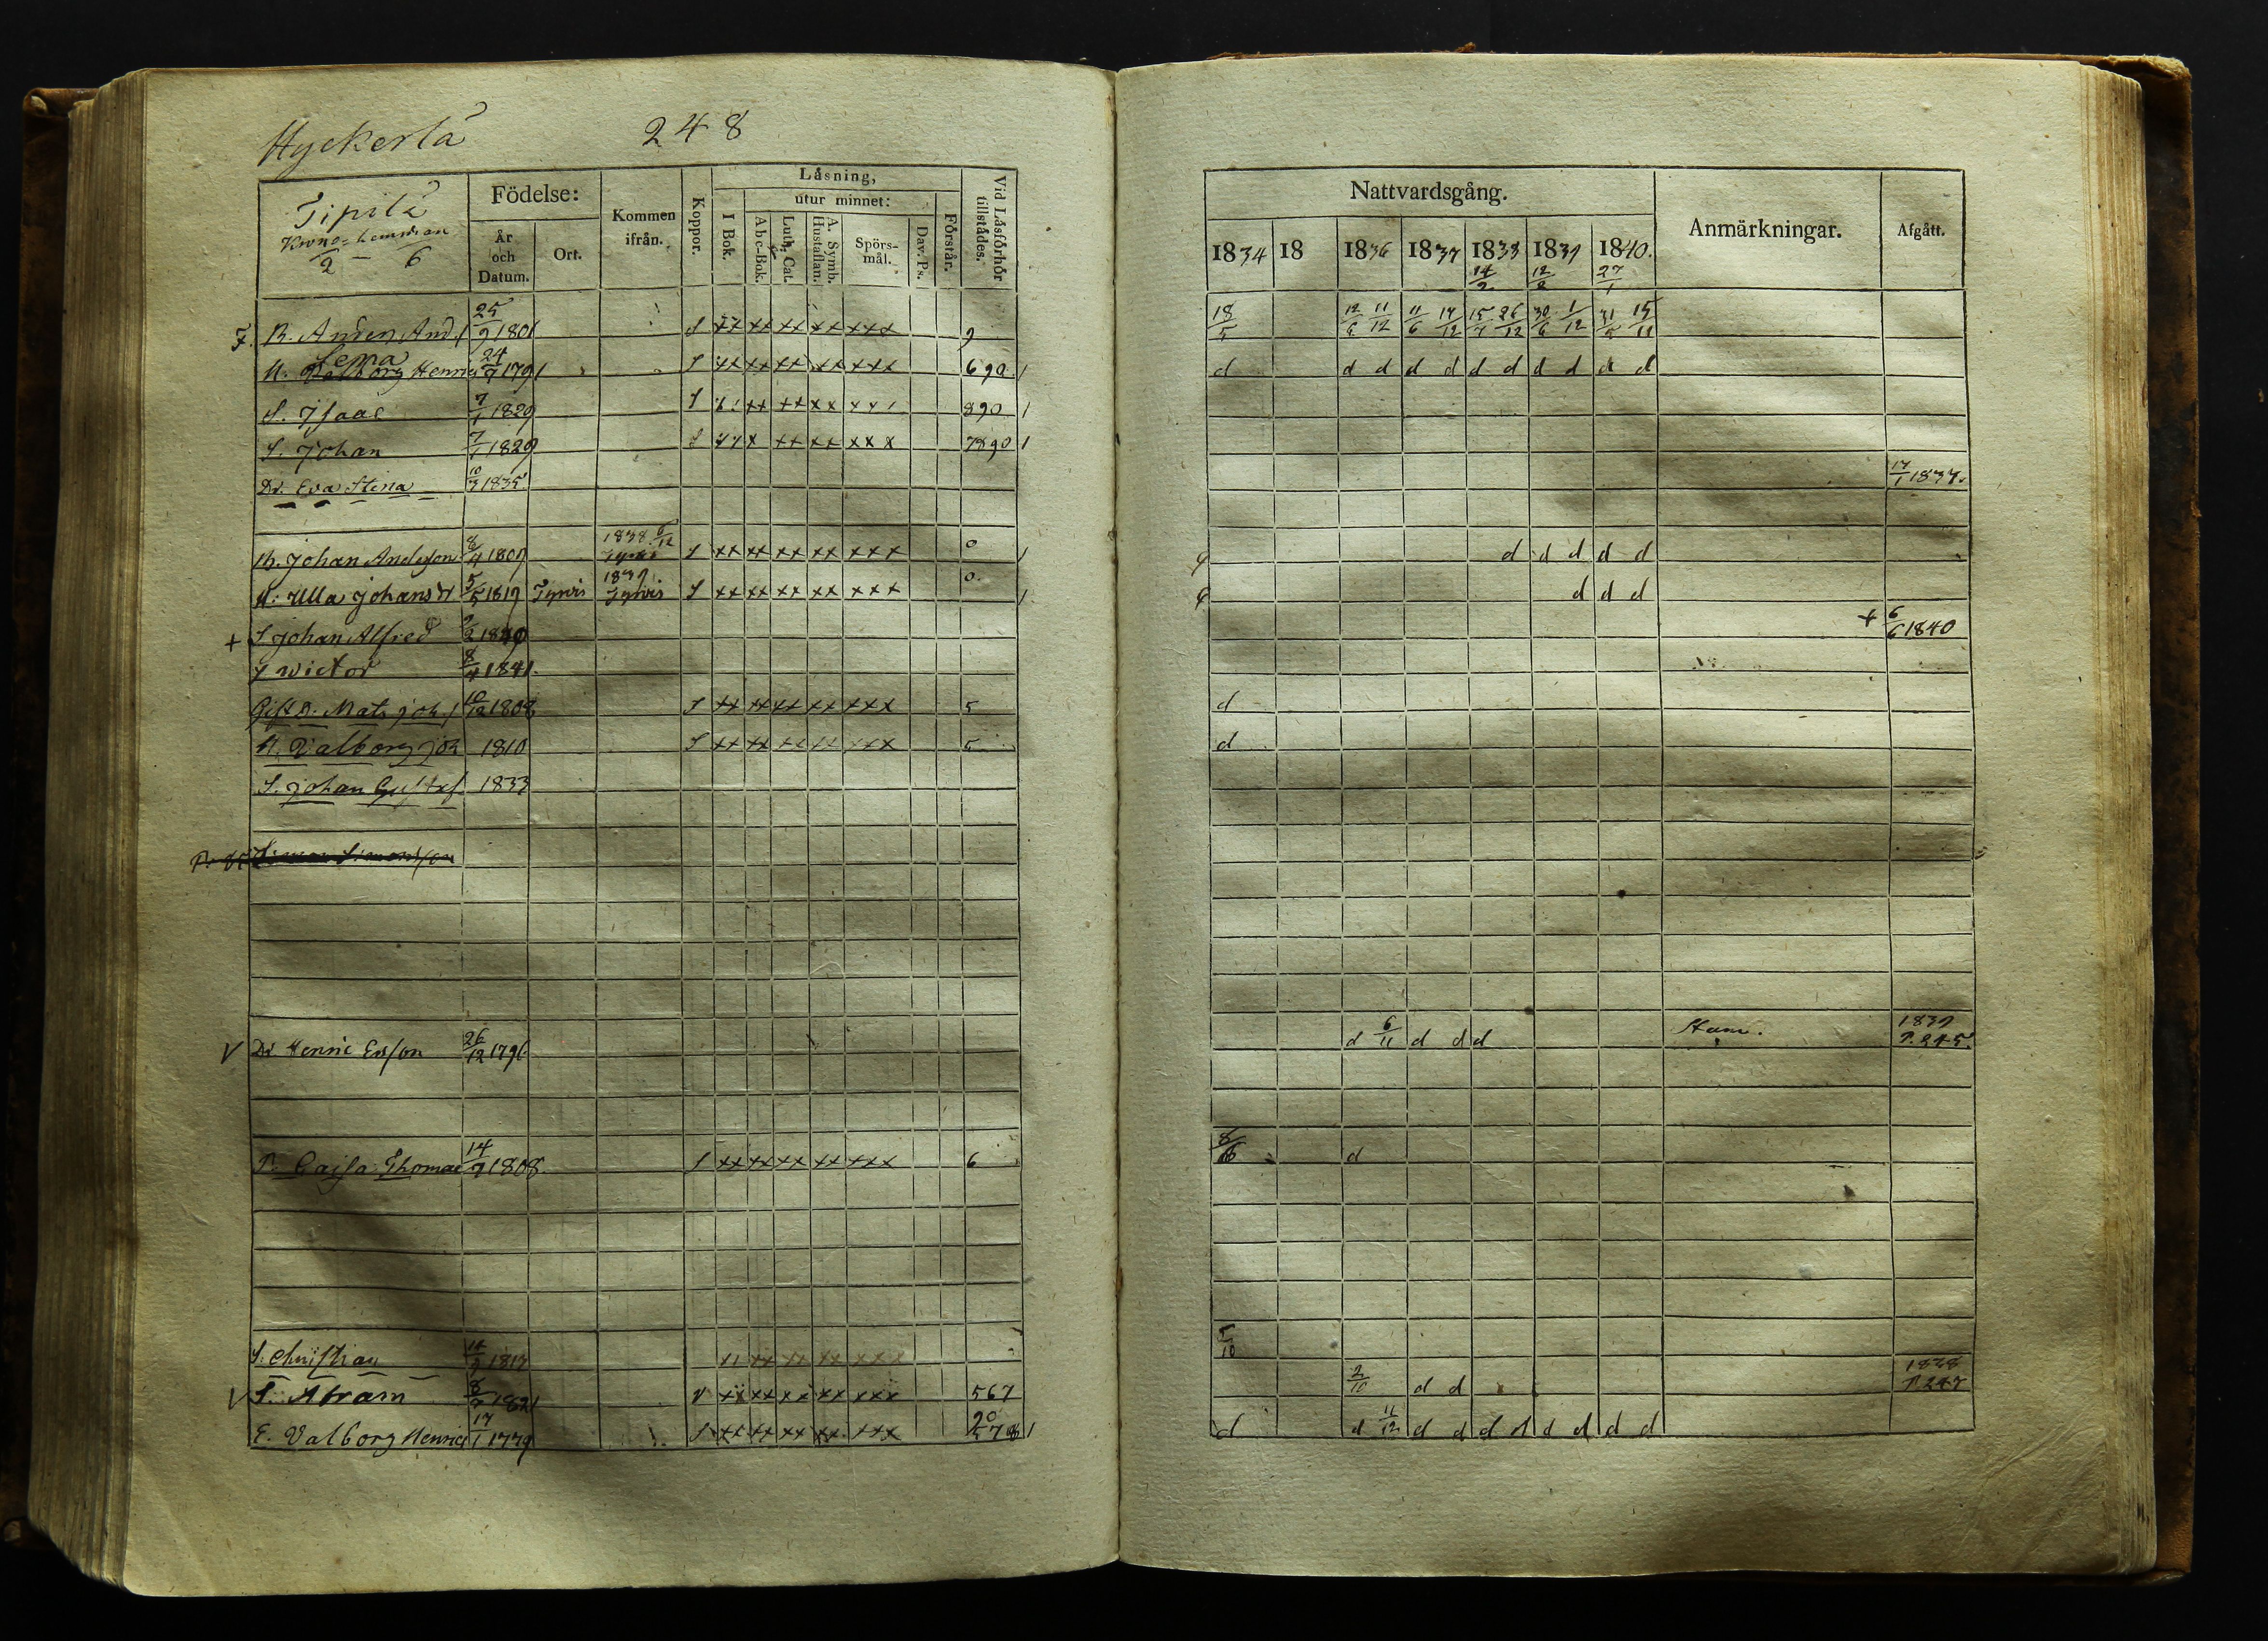 Hyckerlä 248
Tipilä
Krono=hemman
2 – 6
Födelse:
År och Datum.
Ort.
Kommen ifrån.
Koppor.
Läsning,
I Bok.
utur minnet:
Abc-Bok.
Luth. Cat.
A. Symb. Hustaflan.
Spörs-mål.
Dav. Ps.
Förstår.
Vid Läsförhör tillstädes.
Nattvardsgång.
1834 18 1836 1837 1838 1839 1840.
14/2 12/2 27/1
Anmärkningar.
Afgått.
B. Anders And.s 25/9 1801 S xx xx xx xx xxx 9 18/5 12/6 11/12 11/6 26/12 30/6 1/12 15/11
Lena
H. Henrics 24/7 1791 S xx xx xx xx xxx 690 1 d d d d d d d d d d d
S. Isaac 7/1 1829 S xx xx xx 890 1
S. Johan 7/1 1829 S x xx xx xxx 7890 1
Dr. Eva Stina 10/3 1835 17/1 1837.
B. Johan Andersson 8/4 1809 1838 6/12 S xx xx xx xx xxx 0 1 d d d d d
H. Ulla Johansdr 5/5 1819 Tyrvis 1839. Tyrvis S xx xx xx xx xxx 0. 1 d d d
+ S Johan Alfred 2/2 1840 + 6/6 1840
S Wictor 8/4 1841.
Gift D. Mats Joh.s 10/12 1808 S xx xx xx xx xxx 5 d
H. Valborg Joh 1810 S xx xx xx xx xxx 5 d
S. Johan Gustaf 1833
Simon Simonsson
V Dr Henric Ersson 26/12 1796 d 6/11 d d d 1839 P. 245.
P. Cajsa Thomae 14/9 1808 S xx xx xx xx xxx 6 d
S. Christian 1817 xx xx xx xxx 5/10
V S. Abram 8/7 1821 V xx xx xx xx xxx 567 2/10 d d 1838 P. 247
E. Valborg Henrics 17/1 1779 S xx xx xx xx xxx 1 d d 11/12 d d d d d d d d